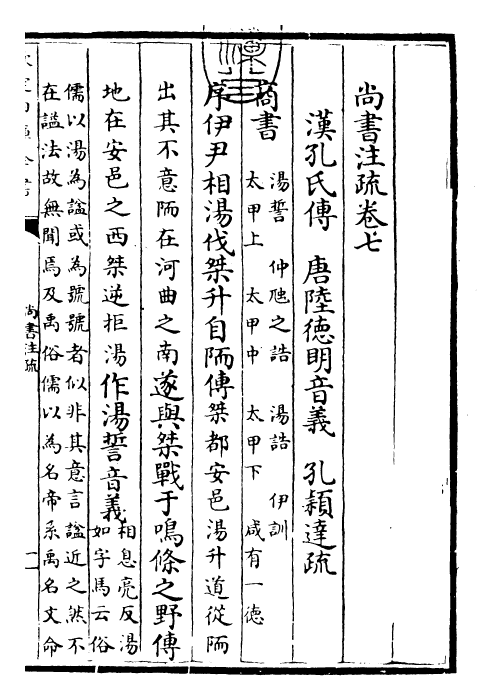 尚書注疏卷七
漢孔氏傳 唐陸德明音義 孔穎達疏
商書
湯誓 仲虺之誥 湯誥 伊訓
太甲上 太甲中 太甲下 咸有一德
序伊尹相湯伐桀升自陑傳桀都安邑湯升道從陑
出其不意陑在河曲之南遂與桀戰于鳴條之野傳
地在安邑之西桀逆拒湯作湯誓音義
相息亮反湯
如字馬云俗
儒以湯為諡或為號號者似非其意言諡近之然不
在諡法故無聞焉及禹俗儒以為名帝系禹名文命
尚書注疏
一